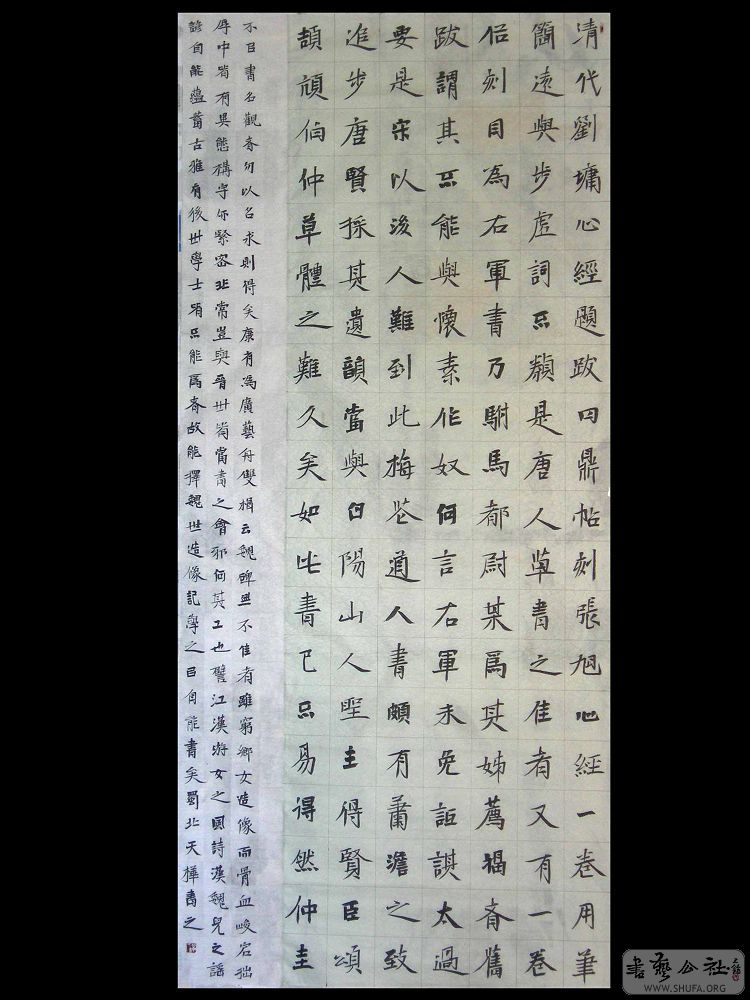 清代劉墉心經題跋曰鼎帖刻張旭心經一卷用筆
簡遠與步虛詞不類是唐人草書之佳者又有一卷
侶刻目為右軍書乃駙馬都尉某為其姊薦福齋舊
跋謂其不能與懷素作奴何言右軍未免詆諆太過
要是宋以後人難到此梅花道人書頗有蕭澹之致
追步唐賢採其遺韻當與句陽山人聖主得賢臣頌
頡頏伯仲草體之難久矣如此書已不易得然仲圭
不以書名觀者勿以名求則得矣康有為廣藝舟雙楫云魏碑無不佳者雖窮鄉女造像而骨血峻宕拙
厚中皆有異態構字亦緊密非常豈與晉世皆當書之會邪何其工也譬江漢游女之風詩漢魏兒之謠
諺自能蘊蓄古雅有後世學士所不能為者故能擇魏世造像記學之已自能書矣蜀北天樺書之
書藝公社
WWW.SHUFA.ORG